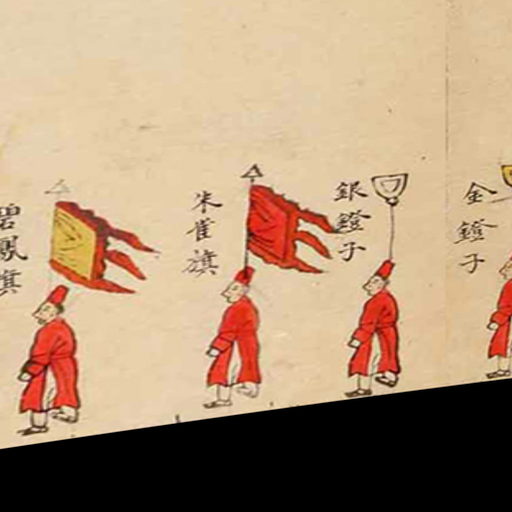 金鐙子
銀鐙子
朱雀旗
碧鳳旗